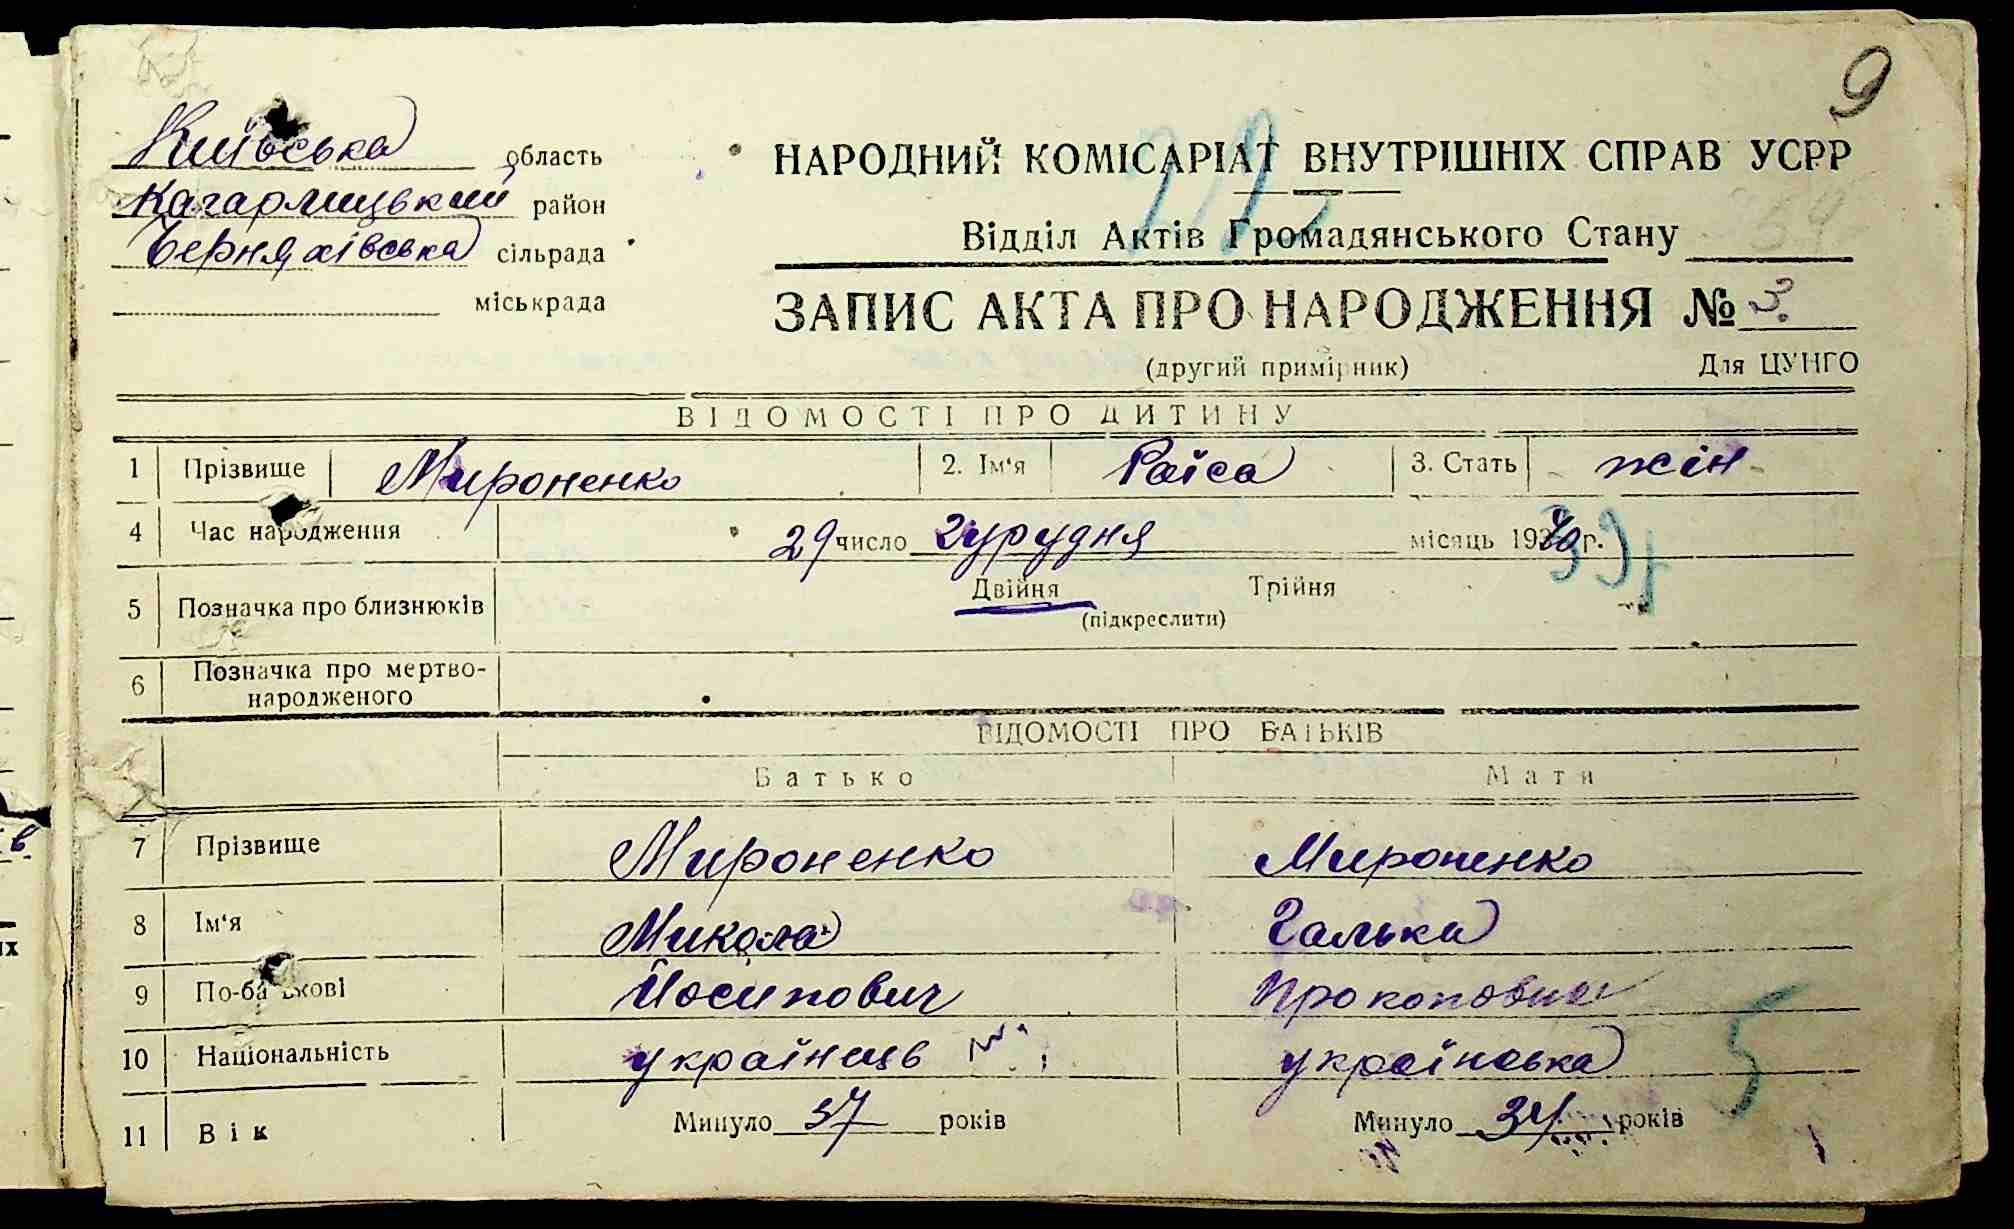 9
Київська область
Кагарлицький район
Черняхівська сільрада
міськрада
НАРОДНИЙ КОМІСАРІАТ ВНУТРІШНІХ СПРАВ УСРР
Відділ Актів Громадянського Стану
ЗАПИС АКТА ПРО НАРОДЖЕННЯ № 3.
(другий примірник) Для ЦУНГО
ВІДОМОСТІ ПРО ДИТИНУ
1 Прізвище Мироненко 2. Ім'я Раїса 3. Стать жін
4 Час народження 29 число грудня місяць 19 р. 39
5 Позначка про близнюків Двійня Трійня
(підкреслити)
6 Позначка про мертво-
народженого
ВІДОМОСТІ ПРО БАТЬКІВ
Батько Мати
7 Прізвище Мироненко Мироненко
8 Ім'я Микола Галька
9 По-ба ькові Йосипович Прокоповна
10 Національність українець українська
11 Вік Минуло 37 років Минуло 34 років
5